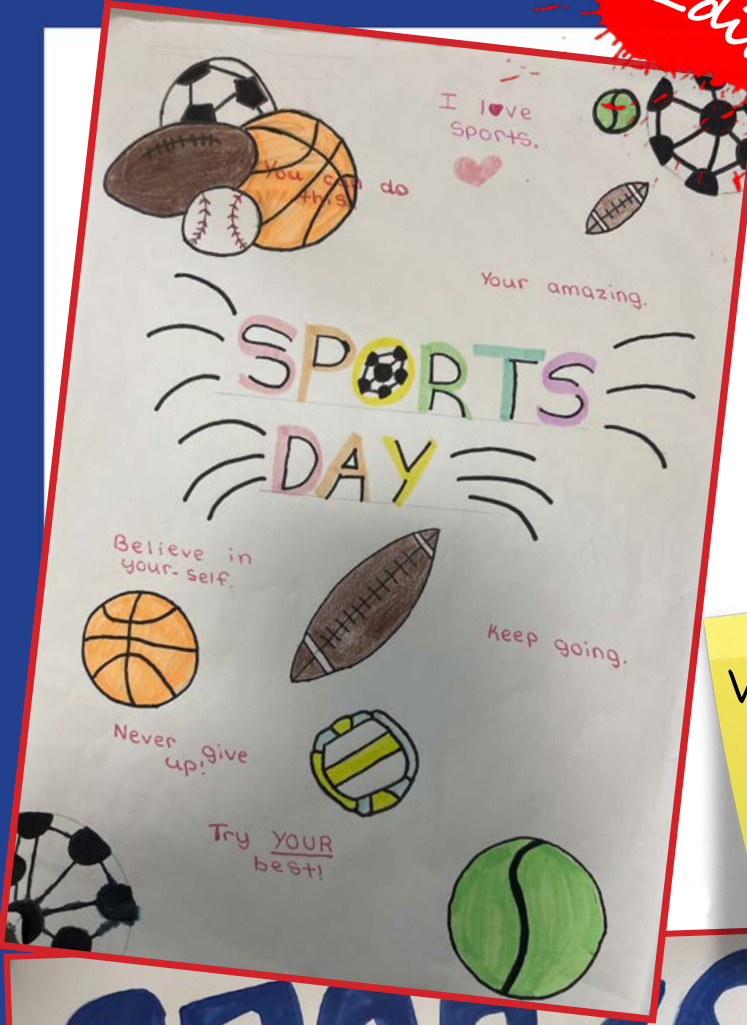 I love
sports.
You can do
this!
Your amazing.
SPORTS
DAY
Believe in
your-self.
Keep going.
Never give
up!
Try YOUR
best!